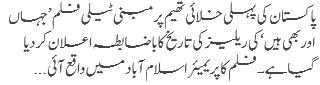 پاکستان کی پہلی خلائی تھیم پر مبنی ٹیلی فلم ’جہاں
اور بھی ہیں‘ کی ریلیز کی تاریخ کا باضابطہ اعلان کر دیا
گیا ہے۔ فلم کا پریمیئر اسلام آباد میں واقع آئی...